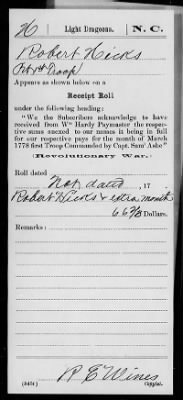 H | Light Dragoons. | N. C.
Robert Hicks
Pvt 1st Troop
Appears as shown below on a
Receipt Roll
under the following heading:
"We the Subscribers acknowledge to have
received from Wm Hardy Paymaster the respec-
tive sums enexed to our names is being in full
for our respective pays for the month of March
1778 first Troop Commanded by Capt. Sam' Ashe"
(Revolutionary War.)
Roll dated
Not dated, 17 .
Robert Hicks & extra month
6 6 2/3 Dollars.
Remarks:
R E Wines
Copyist.